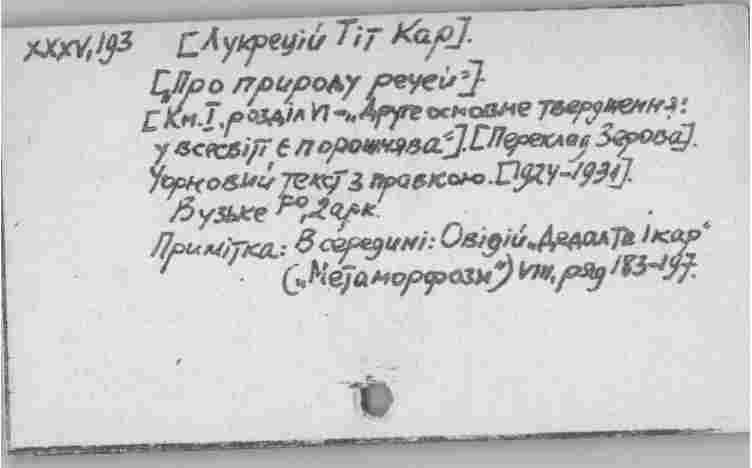 XXXV,193 [Лукрецій Тіт Кар].
[„Про природу речей"].
[Кн. I. розділ VI – „Друге основне твердження:
у всесвіті є порожнява"]. [Переклад Зерова].
Чорновий текст з правкою. [1924–1931].
Вузьке Fº, 2 арк.
Примітка: В середині: Овідій „Дедал та Ікар"
(„Метаморфози") VIII, ряд 183–197.